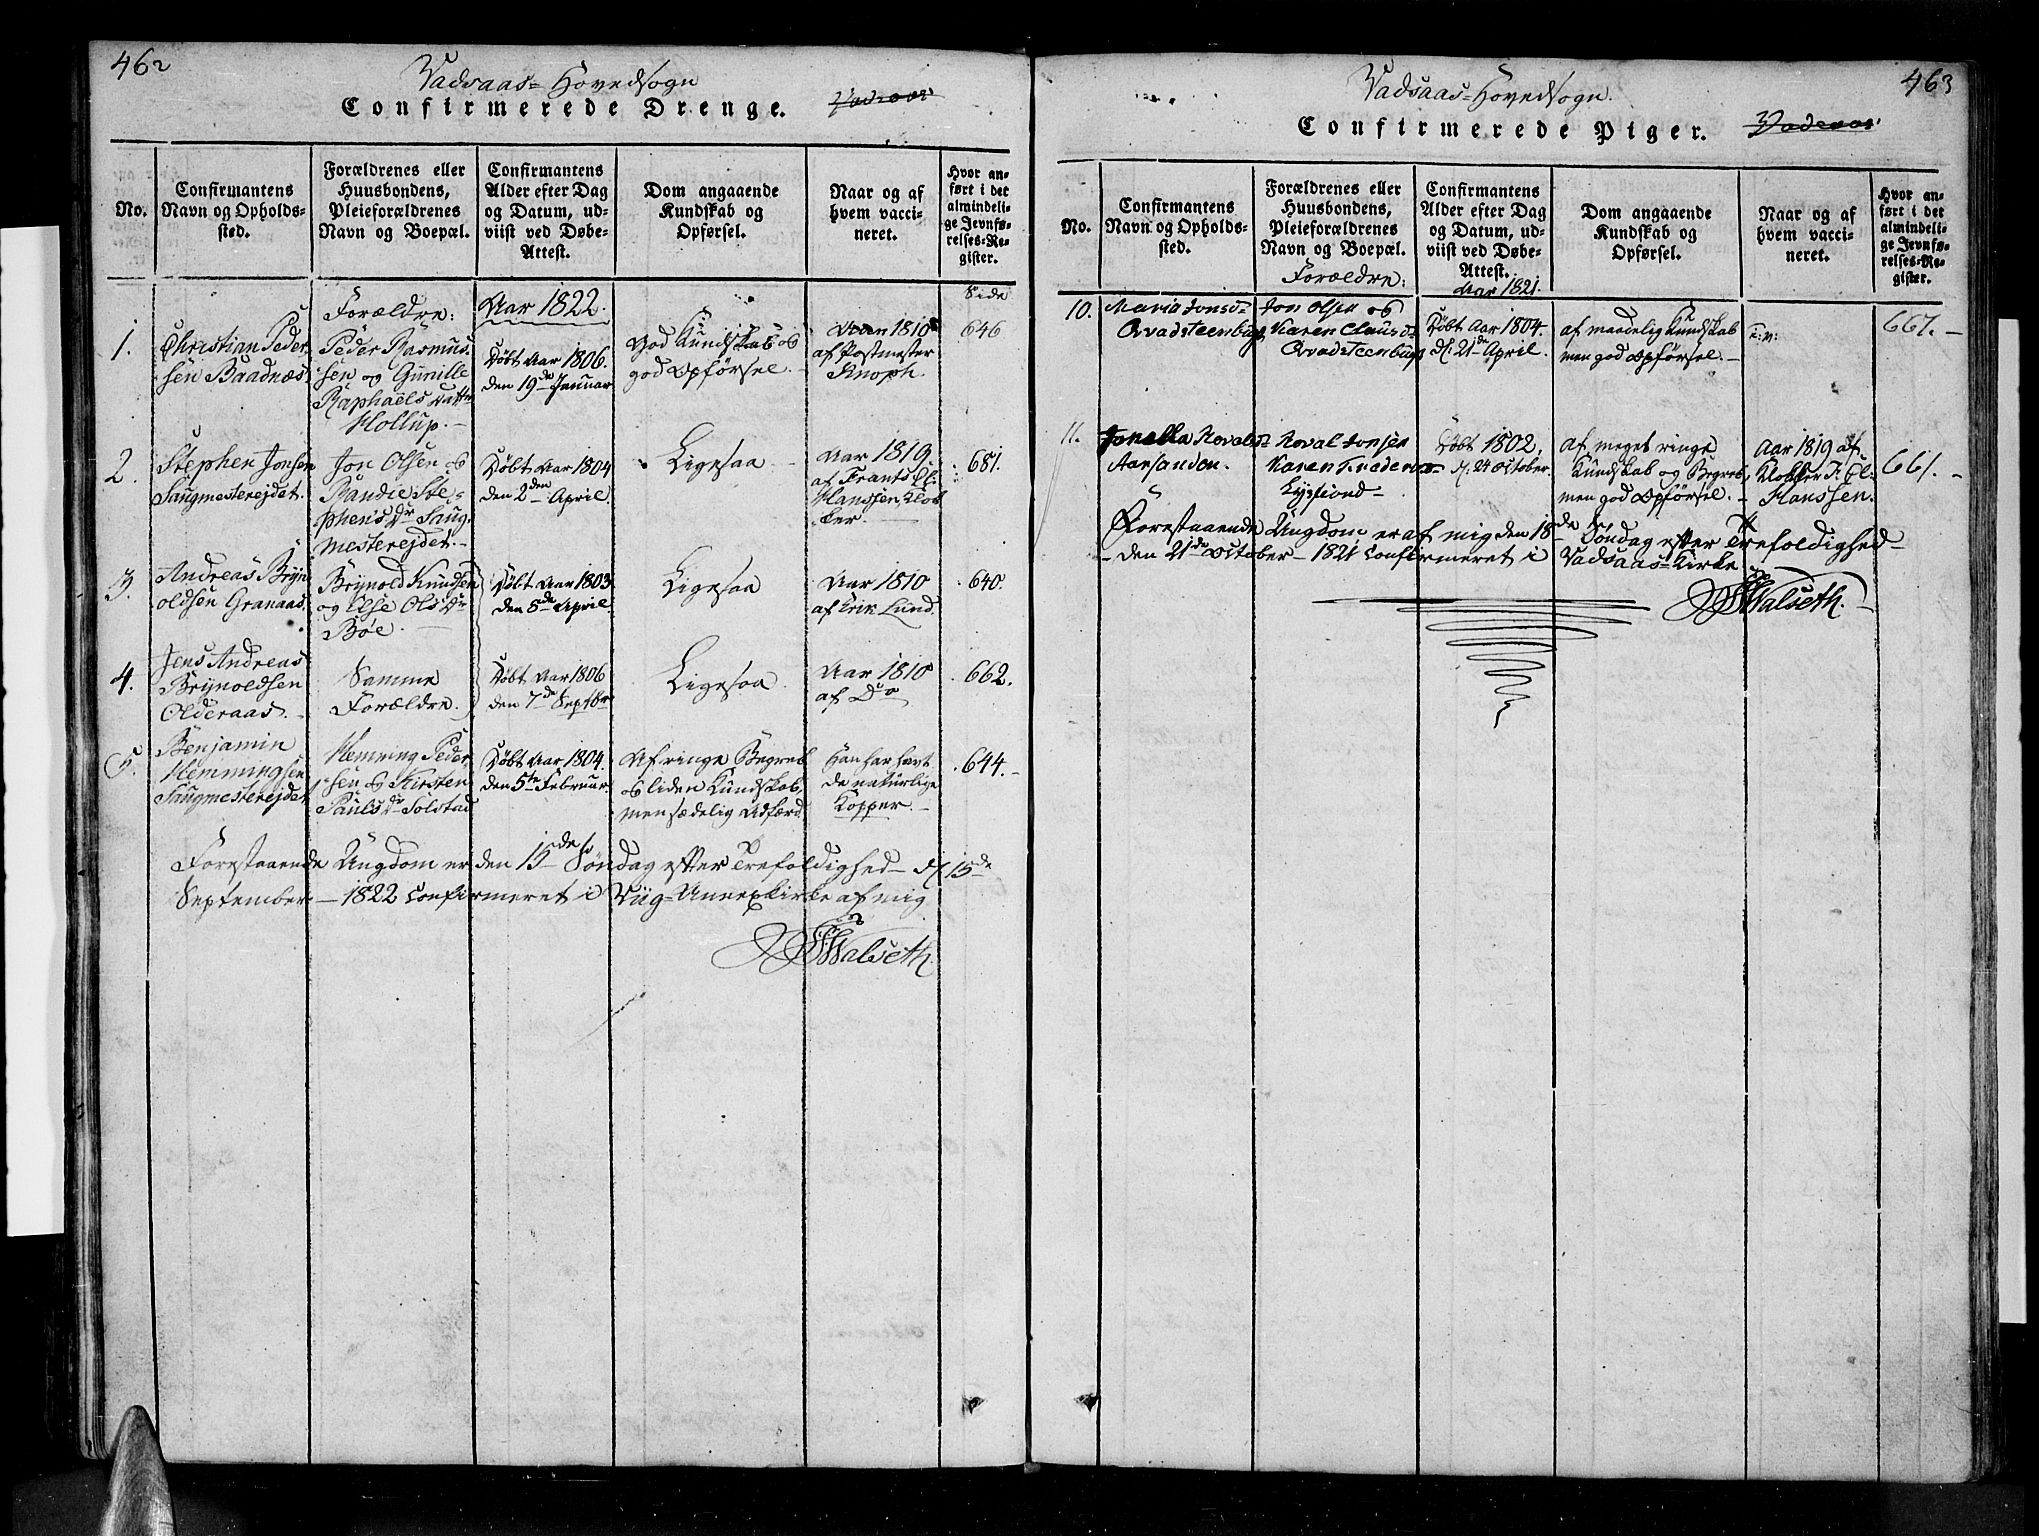 462
Vadsaas- Hovedsogn
Confirmerede Drenge.
No.
Confirmantens
Navn og Opholds-
sted.
Forældrenes eller
Huusbondens,
Pleieforældrenes
Navn og Boepæl.
Confirmantens
Alder efter Dag
og Datum, ud-
viist ved Døbe-
Attest.
Dom angaaende
Kundskab og
Opførsel.
Naar og af
hvem vacci-
neret.
Hvor an-
ført i det
almindeli-
ge Jevnfø-
relses-Re-
gister.
Forældre:
Aar 1822.
Side
1.
Christian Peder-
sen Baadnæs
Peder Rasmus-
sen og Gunille
Raphaëls Datter
Hollup.
Døbt Aar 1806.
den 19de Januar
God Kundskab og
god Opførsel.
Aar 1810
af Postmester
Knoph.
646
2.
Stephen Jonsen
Saugmesterejdet.
Jon Olsen og
Randie Ste-
phens Dr Saug-
mesterejdet.
Døbt Aar 1804
den 2den April
Ligesaa
Aar 1819.
af Frants El:
Hanssen, Klok-
ker.
681.
3.
Andreas Bryn-
oldsen Granaas.
Brynold Knudsen
og Else Ols Dr
Bøe.
Døbt Aar 1803
den 5de April
Ligesaa
Aar 1810
af Erik Lund.
640.
4.
Jens Andreas
Brynoldsen
Olderaas.
Samme
Forældre.
Døbt Aar 1806
den 7de Septbr
Ligesaa
Aar 1810
af Do
662.
5.
Benjamin
Hemmingsen
Saugmesterejdet
Hemming Peder-
sen og Kirsten
Pauls Dr Solstad
Døbt Aar 1804.
den 5te Februar
Af ringe Begreb
og liden Kundskab,
men sædelig Adfærd
Han har havt
de naturlige
Kopper.
644.
Forestaaende Ungdom er den 15de Søndag efter Trefoldighed d. 15de
September 1822 Confirmeret i Viig-Annexkirke af mig
Walseth.
463
Vadsaas-Hovedsogn.
Confirmerede Piger.
No.
Confirmantens
Navn og Opholds-
sted.
Forældrenes eller
Huusbondens,
Pleieforældrenes
Navn og Boepæl.
Forældre:
Confirmantens
Alder efter Dag
og Datum, ud-
viist ved Døbe-
Attest.
Aar 1821.
Dom angaaende
Kundskab og
Opførsel.
Naar og af
hvem vacci-
neret.
Hvor an-
ført i det
almindeli-
ge Jevnfø-
relses-Re-
gister.
10.
Maria Jonsd-
Qvadsteenbugt
Jon Olsen og
Karen Clausd-
Qvadsteenbugt
Døbt Aar 1804.
d. 21de April.
af maadelig Kundskab
men god Opførsel.
667.
11.
Jonella Rovalsd-
Aarsanden.
Roval Jonsen
Karen
Døbt 1802.
d. 24 October.
af meget ringe
Kundskab og Begreb,
men god Opførsel.
Aar 1819 af
Klokker F: El:
Hanssen.
661.
Forestaaende Ungdom er af mig den 18de Søndag efter Trefoldighed
den 21de October 1821 confirmeret i Vadsaas-Kirke
Walseth.